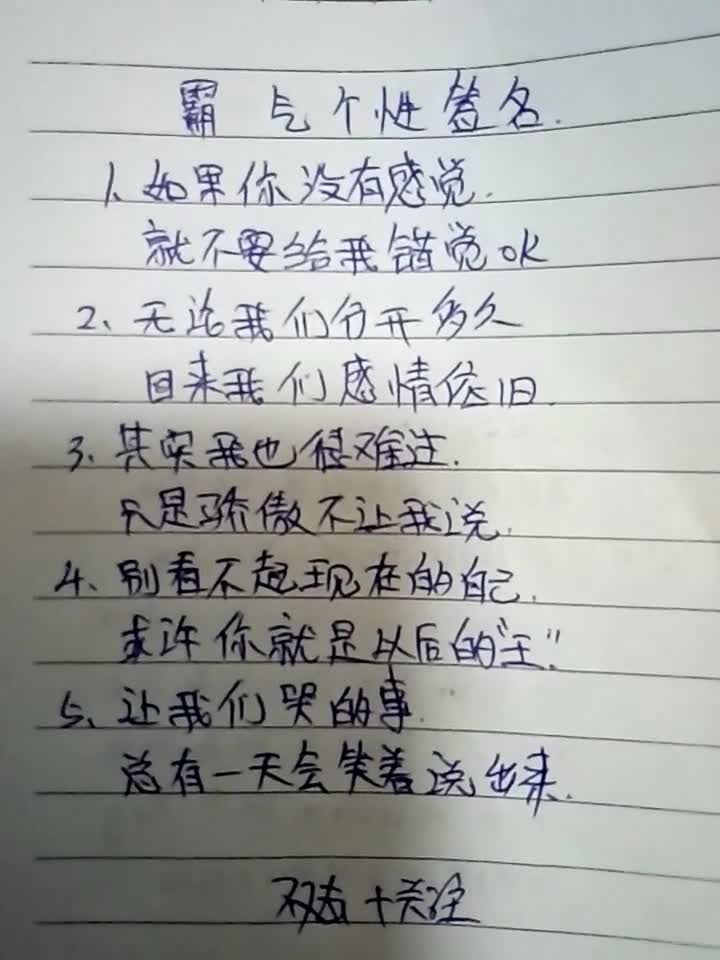 霸气个性签名.
1、如果你没有感觉.
就不要给我错觉ok
2、无论我们分开多久
回来我们感情依旧.
3、其实我也很难过.
只是骄傲不让我说.
4、别看不起现在的自己.
求许你就是以后的“王”.
5、让我们哭的事.
总有一天会笑着说出来.
双击+关注